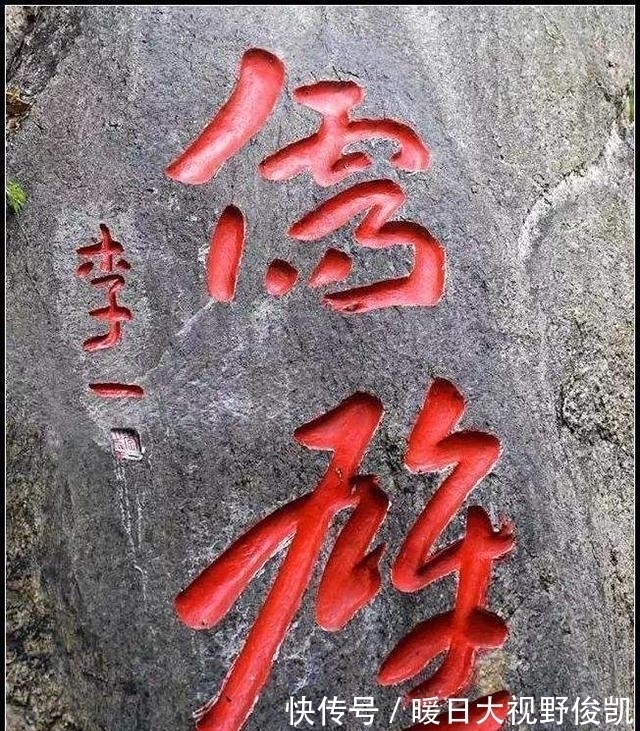 儒
李一
快传号 / 暖日大视野俊凯